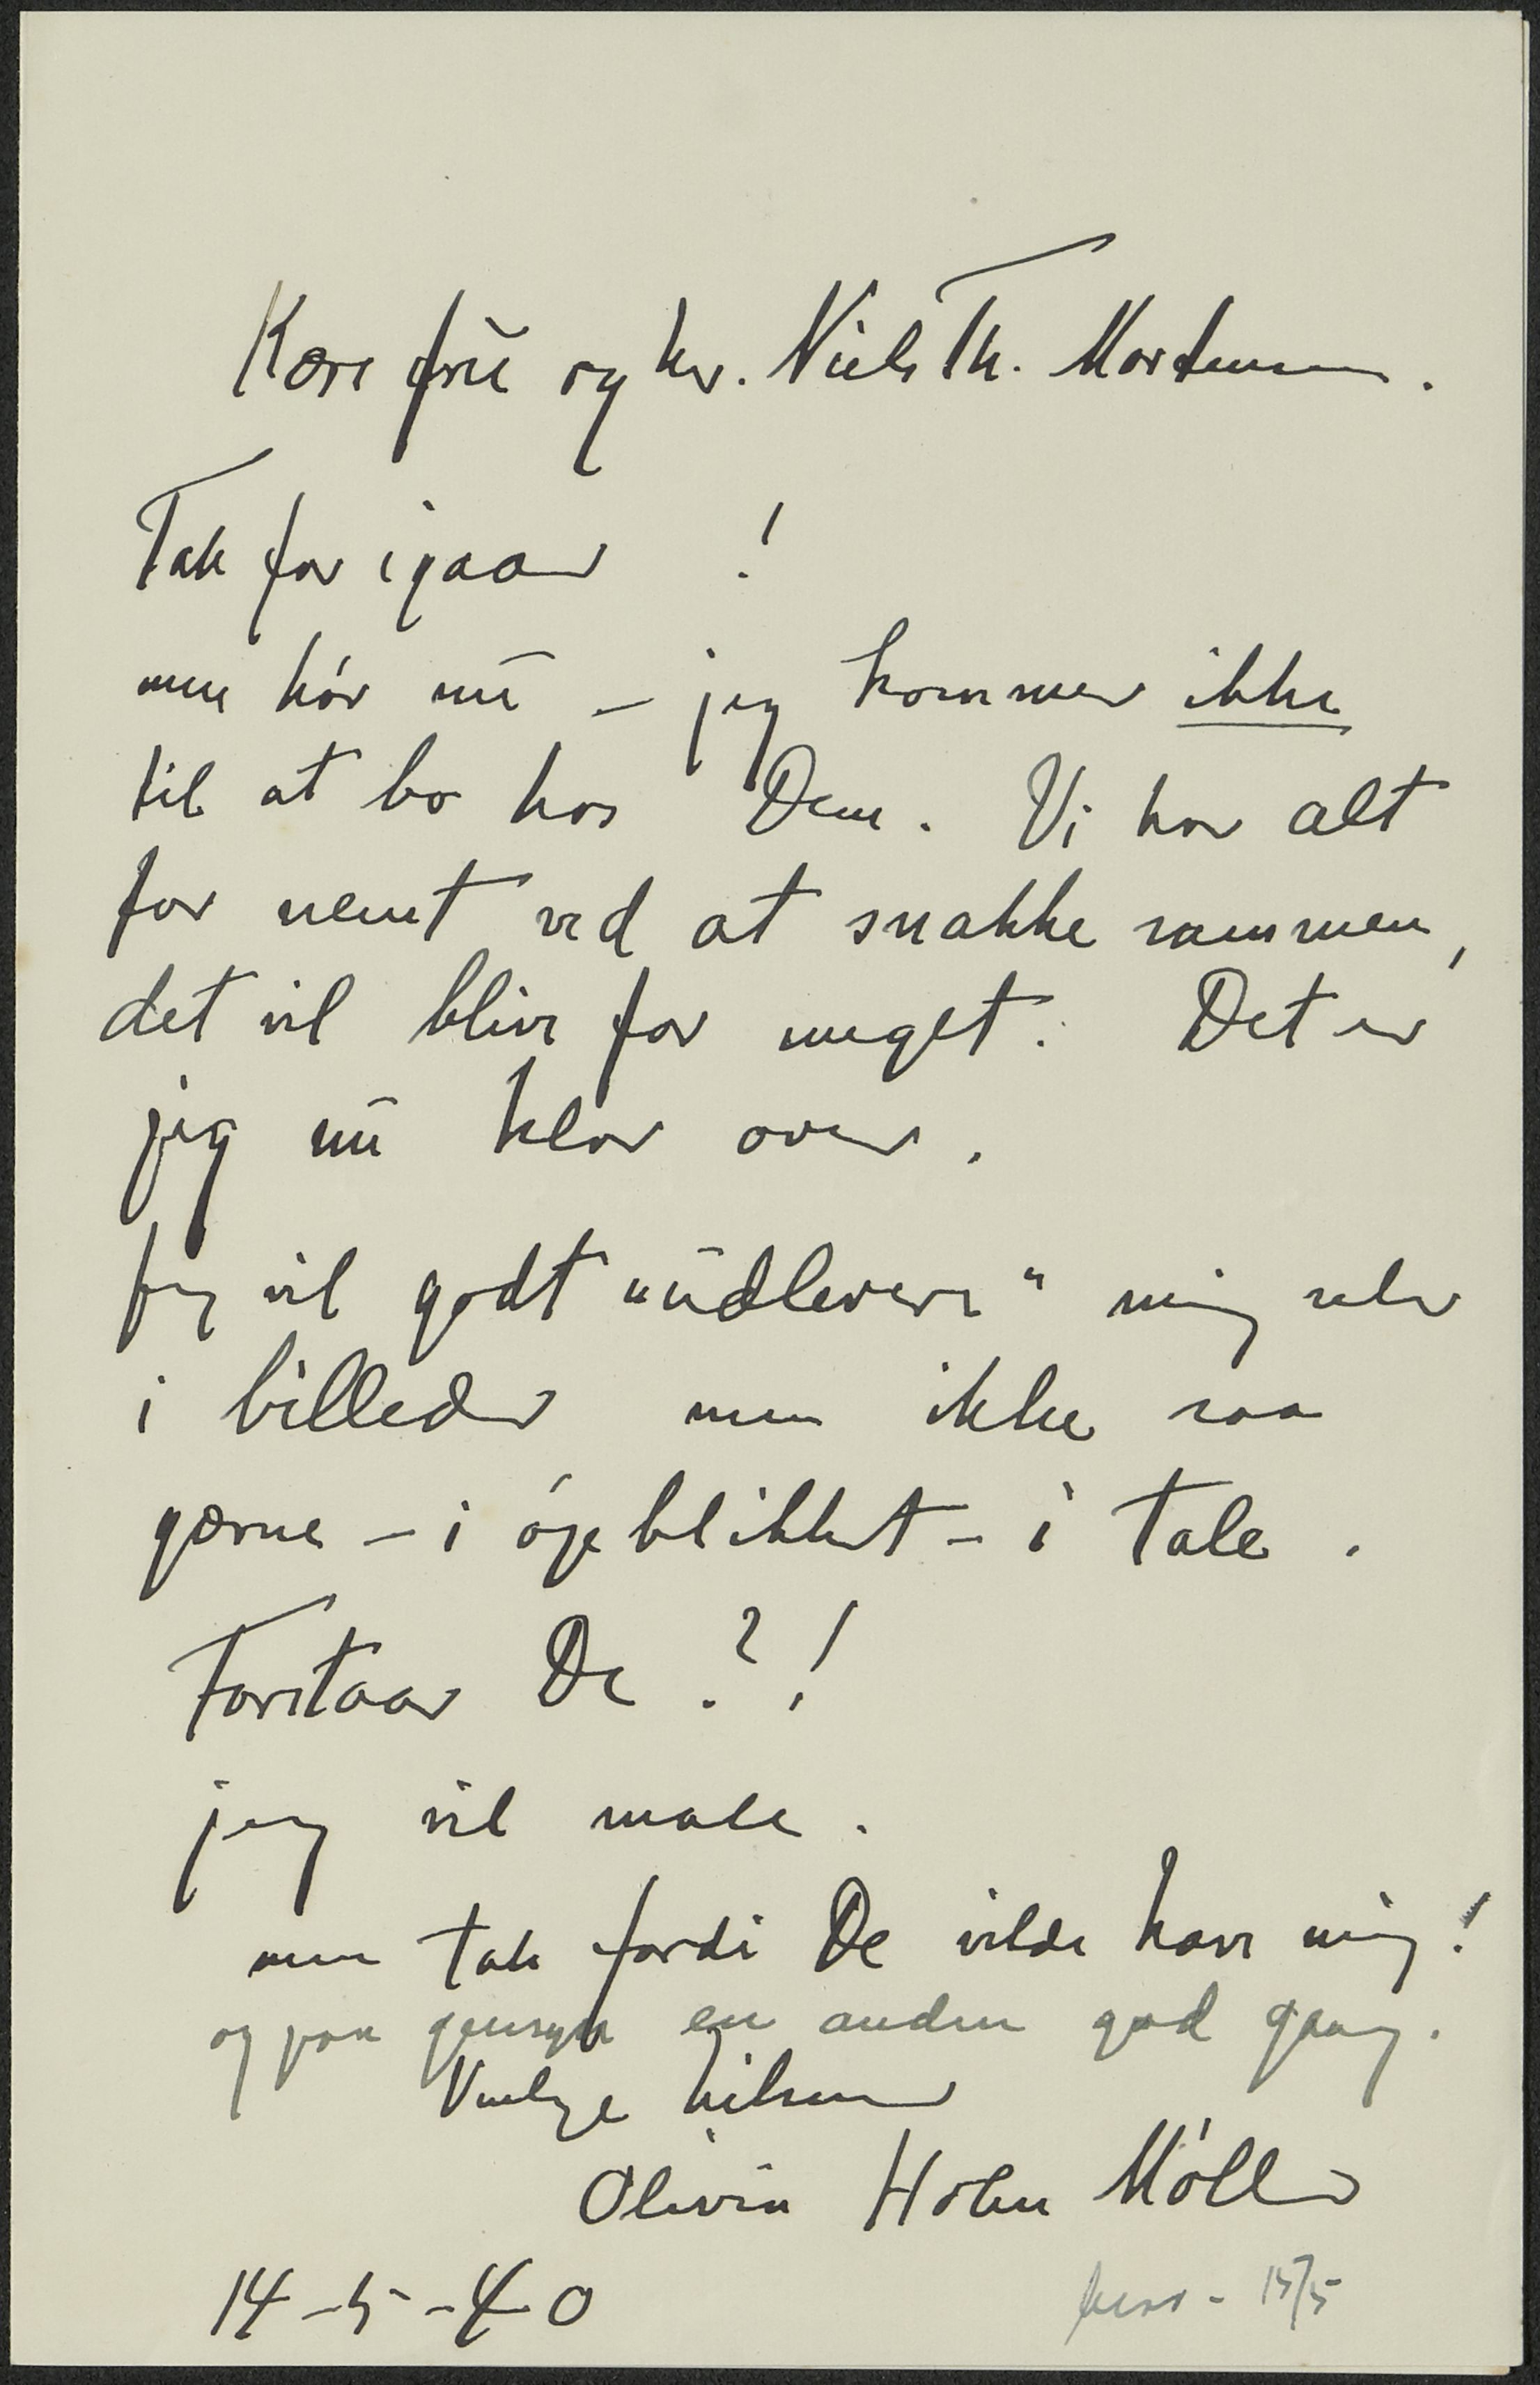 Kære frū og hr. Niels Th. Mortensen.
Tak for igaar !
men hör nū – jeg kommer ikke
til at bo hos Dem. Vi har alt
for nemt ved at snakke sammen,
det vil blive for meget. Det er
jeg nū klar over.
Jeg vil godt "ūdlevere" mig selv
i billeder men ikke saa
gærne – i öjeblikket – i tale.
Forstaar De ?!
jeg vil male.
men tak fordi De vilde have mig!
og paa gensyn en anden god gang.
Venlige hilsener
Olivia Holm Möller
14-5-40
15/5